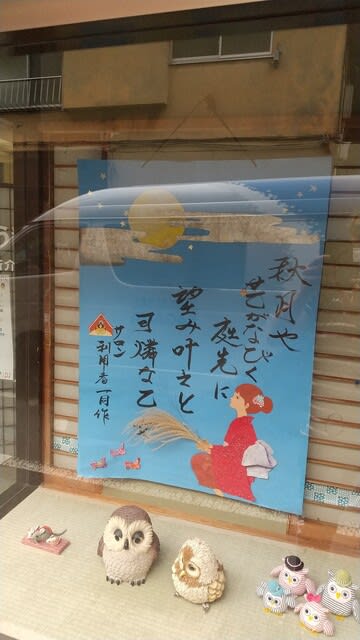 秋月や
芒がなびく
庭先に
望み叶えと
可憐な乙
サロン
利用者一同作